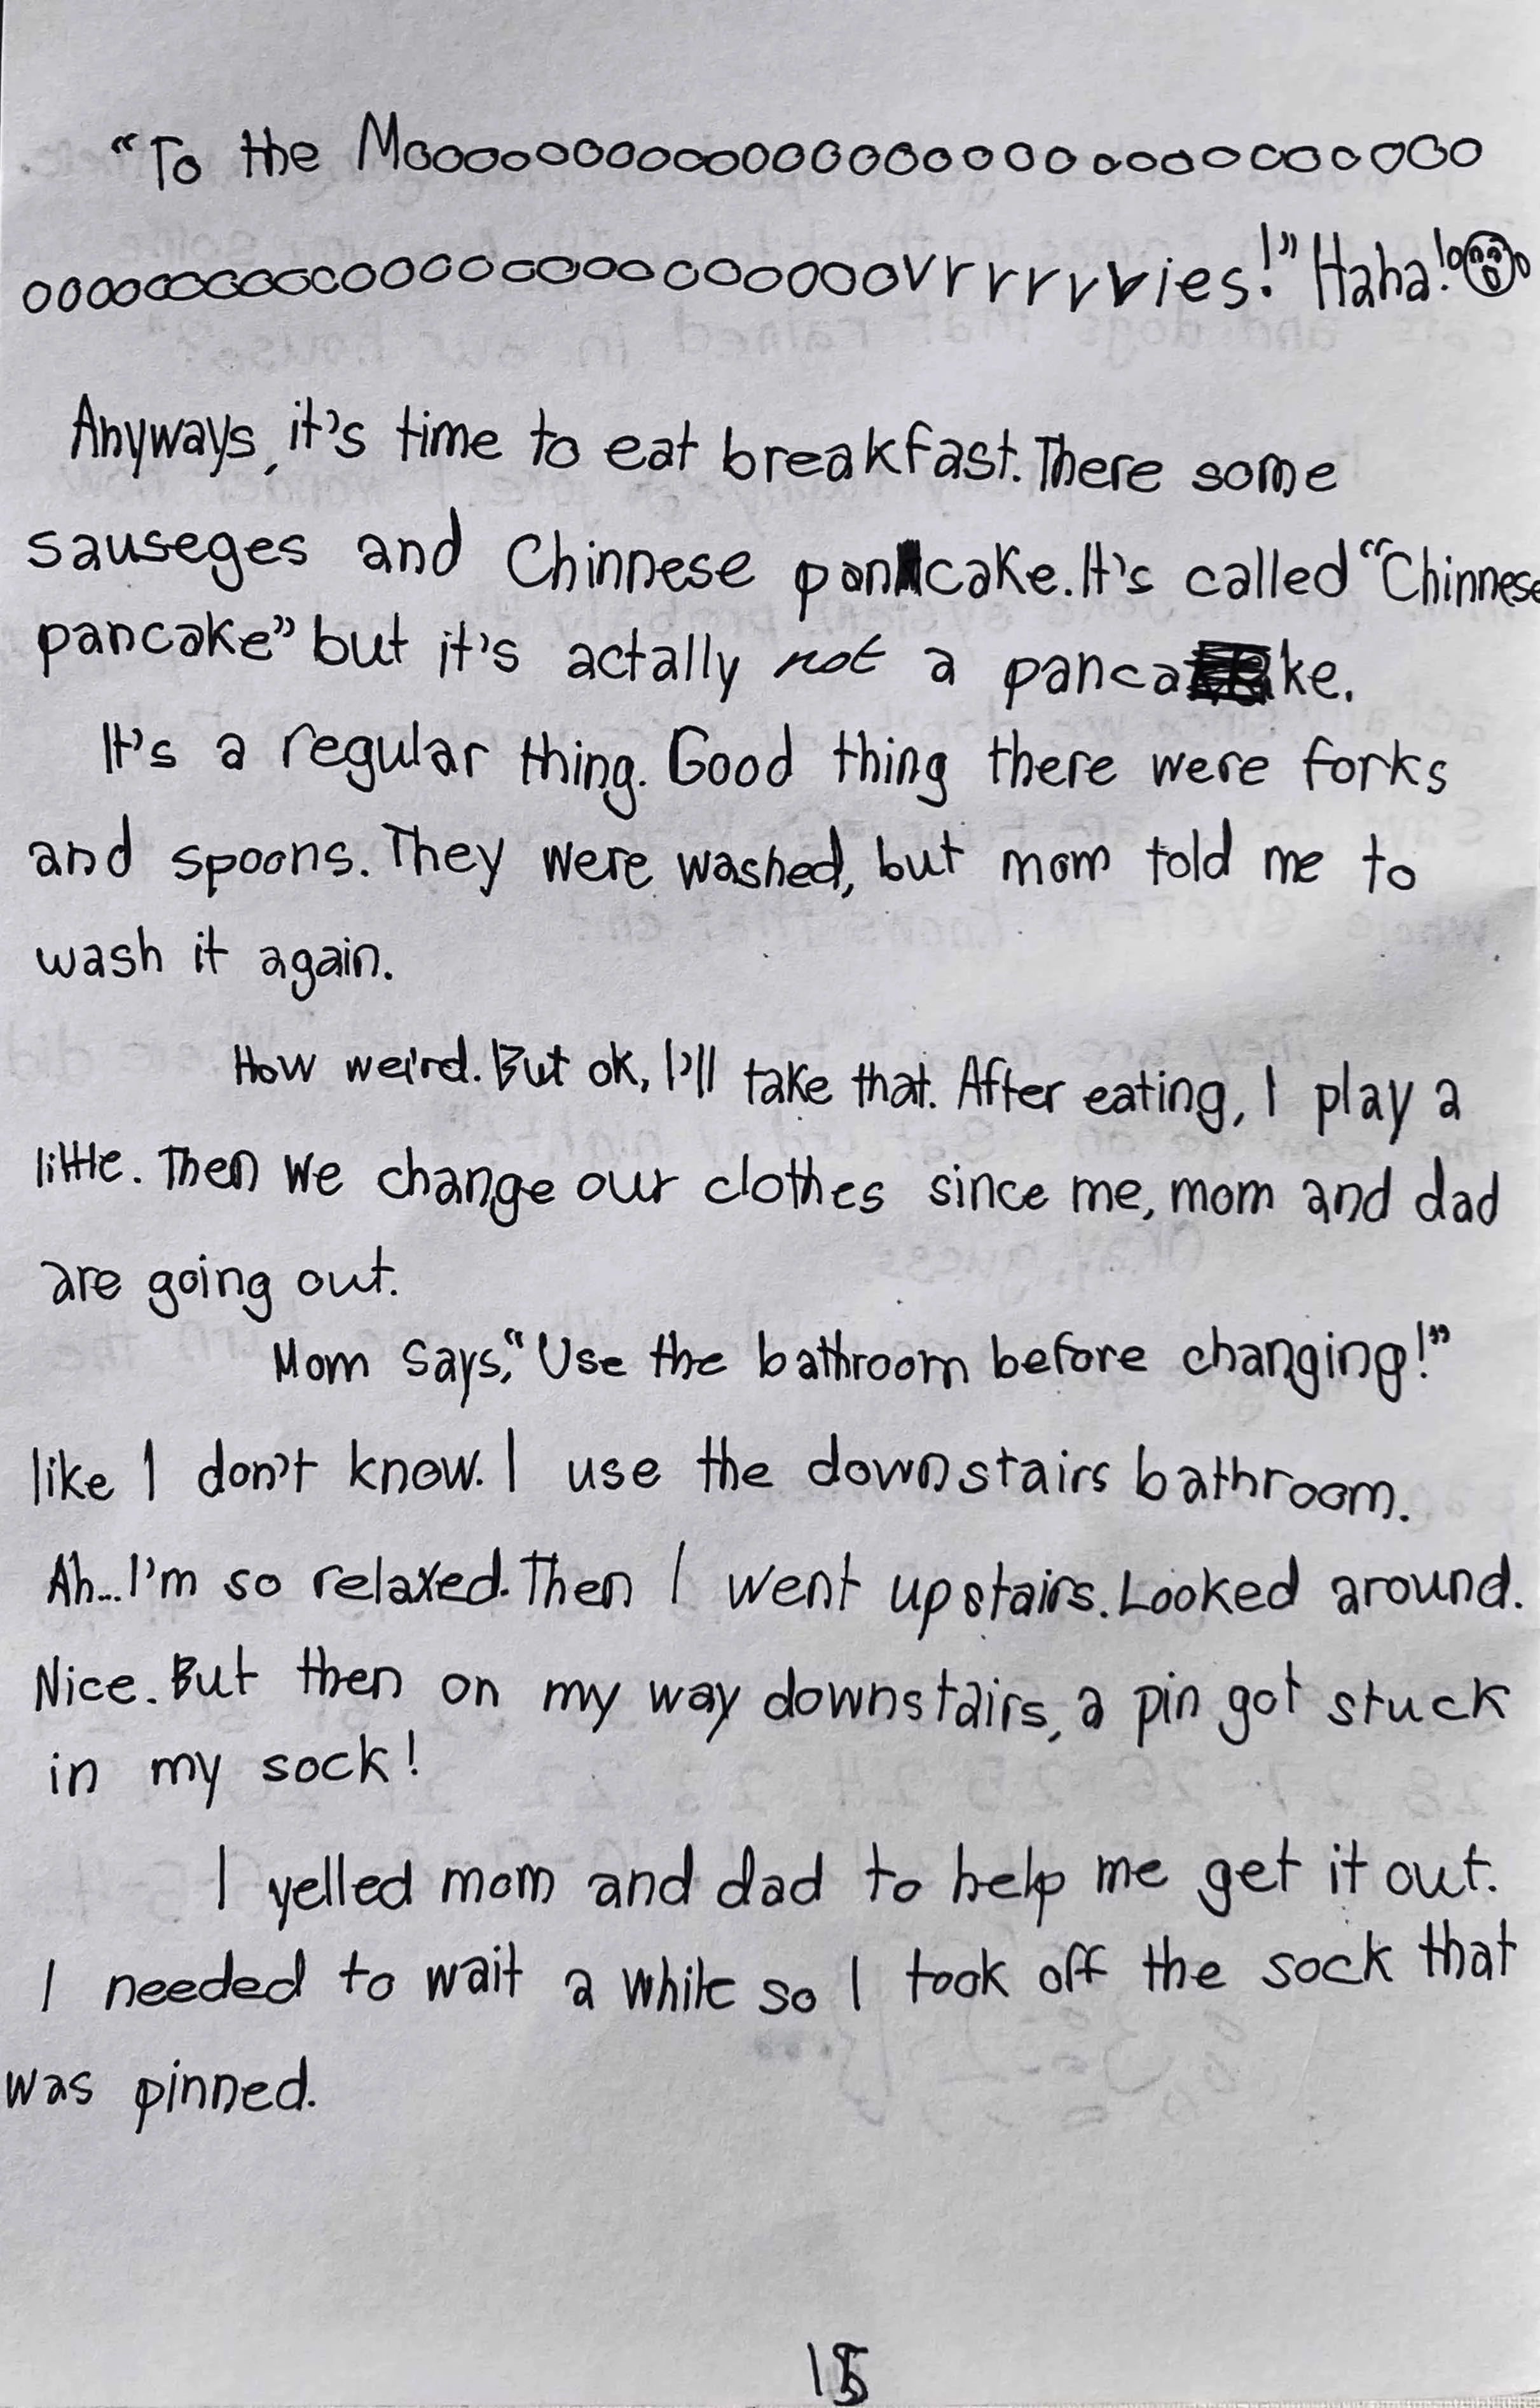 “To the Moooooooooooooooooooooooooooooooo
ooooooooooooooooooooooooovrrrrvies!” Haha!
Anyways, it's time to eat breakfast. There some
sauseges and Chinnese pancake. It's called “Chinnese
pancake” but it's actally not a pancake.
It's a regular thing. Good thing there were forks
and spoons. They were washed, but mom told me to
wash it again.
How weird. But ok, I'll take that. After eating, I play a
little. Then we change our clothes since me, mom and dad
are going out.
Mom says, “Use the bathroom before changing!”
like I don't know. I use the downstairs bathroom.
Ah... I'm so relaxed. Then I went upstairs. Looked around.
Nice. But then on my way downstairs, a pin got stuck
in my sock!
I yelled mom and dad to help me get it out.
I needed to wait a while so I took off the sock that
was pinned.
15